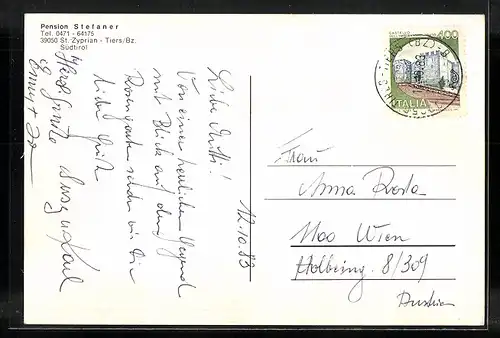 Pension Stefaner
Tel. 0471 - 64175
39050 St. Zyprian - Tiers/Bz.
Südtirol
12.10.83
Liebe Mutti!
Von einer herrlichen Gegend
mit Blick auf den
Rosengarten senden wir Dir
liebe Grüße
Herzl. Grüße
400
ITALIA
Frau
Anna
1100 Wien
Holbeing. 8/309
Austria